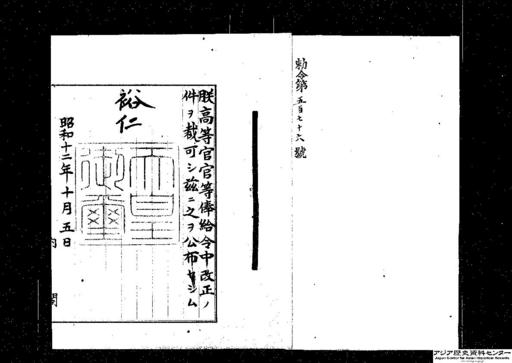 勅令第五百七十六號
朕高等官官等俸給令中改正ノ
件ヲ裁可シ茲ニ之ヲ公布セシム
裕仁
天皇御璽
昭和十二年十月五日
内閣
アジア歴史資料センター
Japan Center for Asian Historical Records